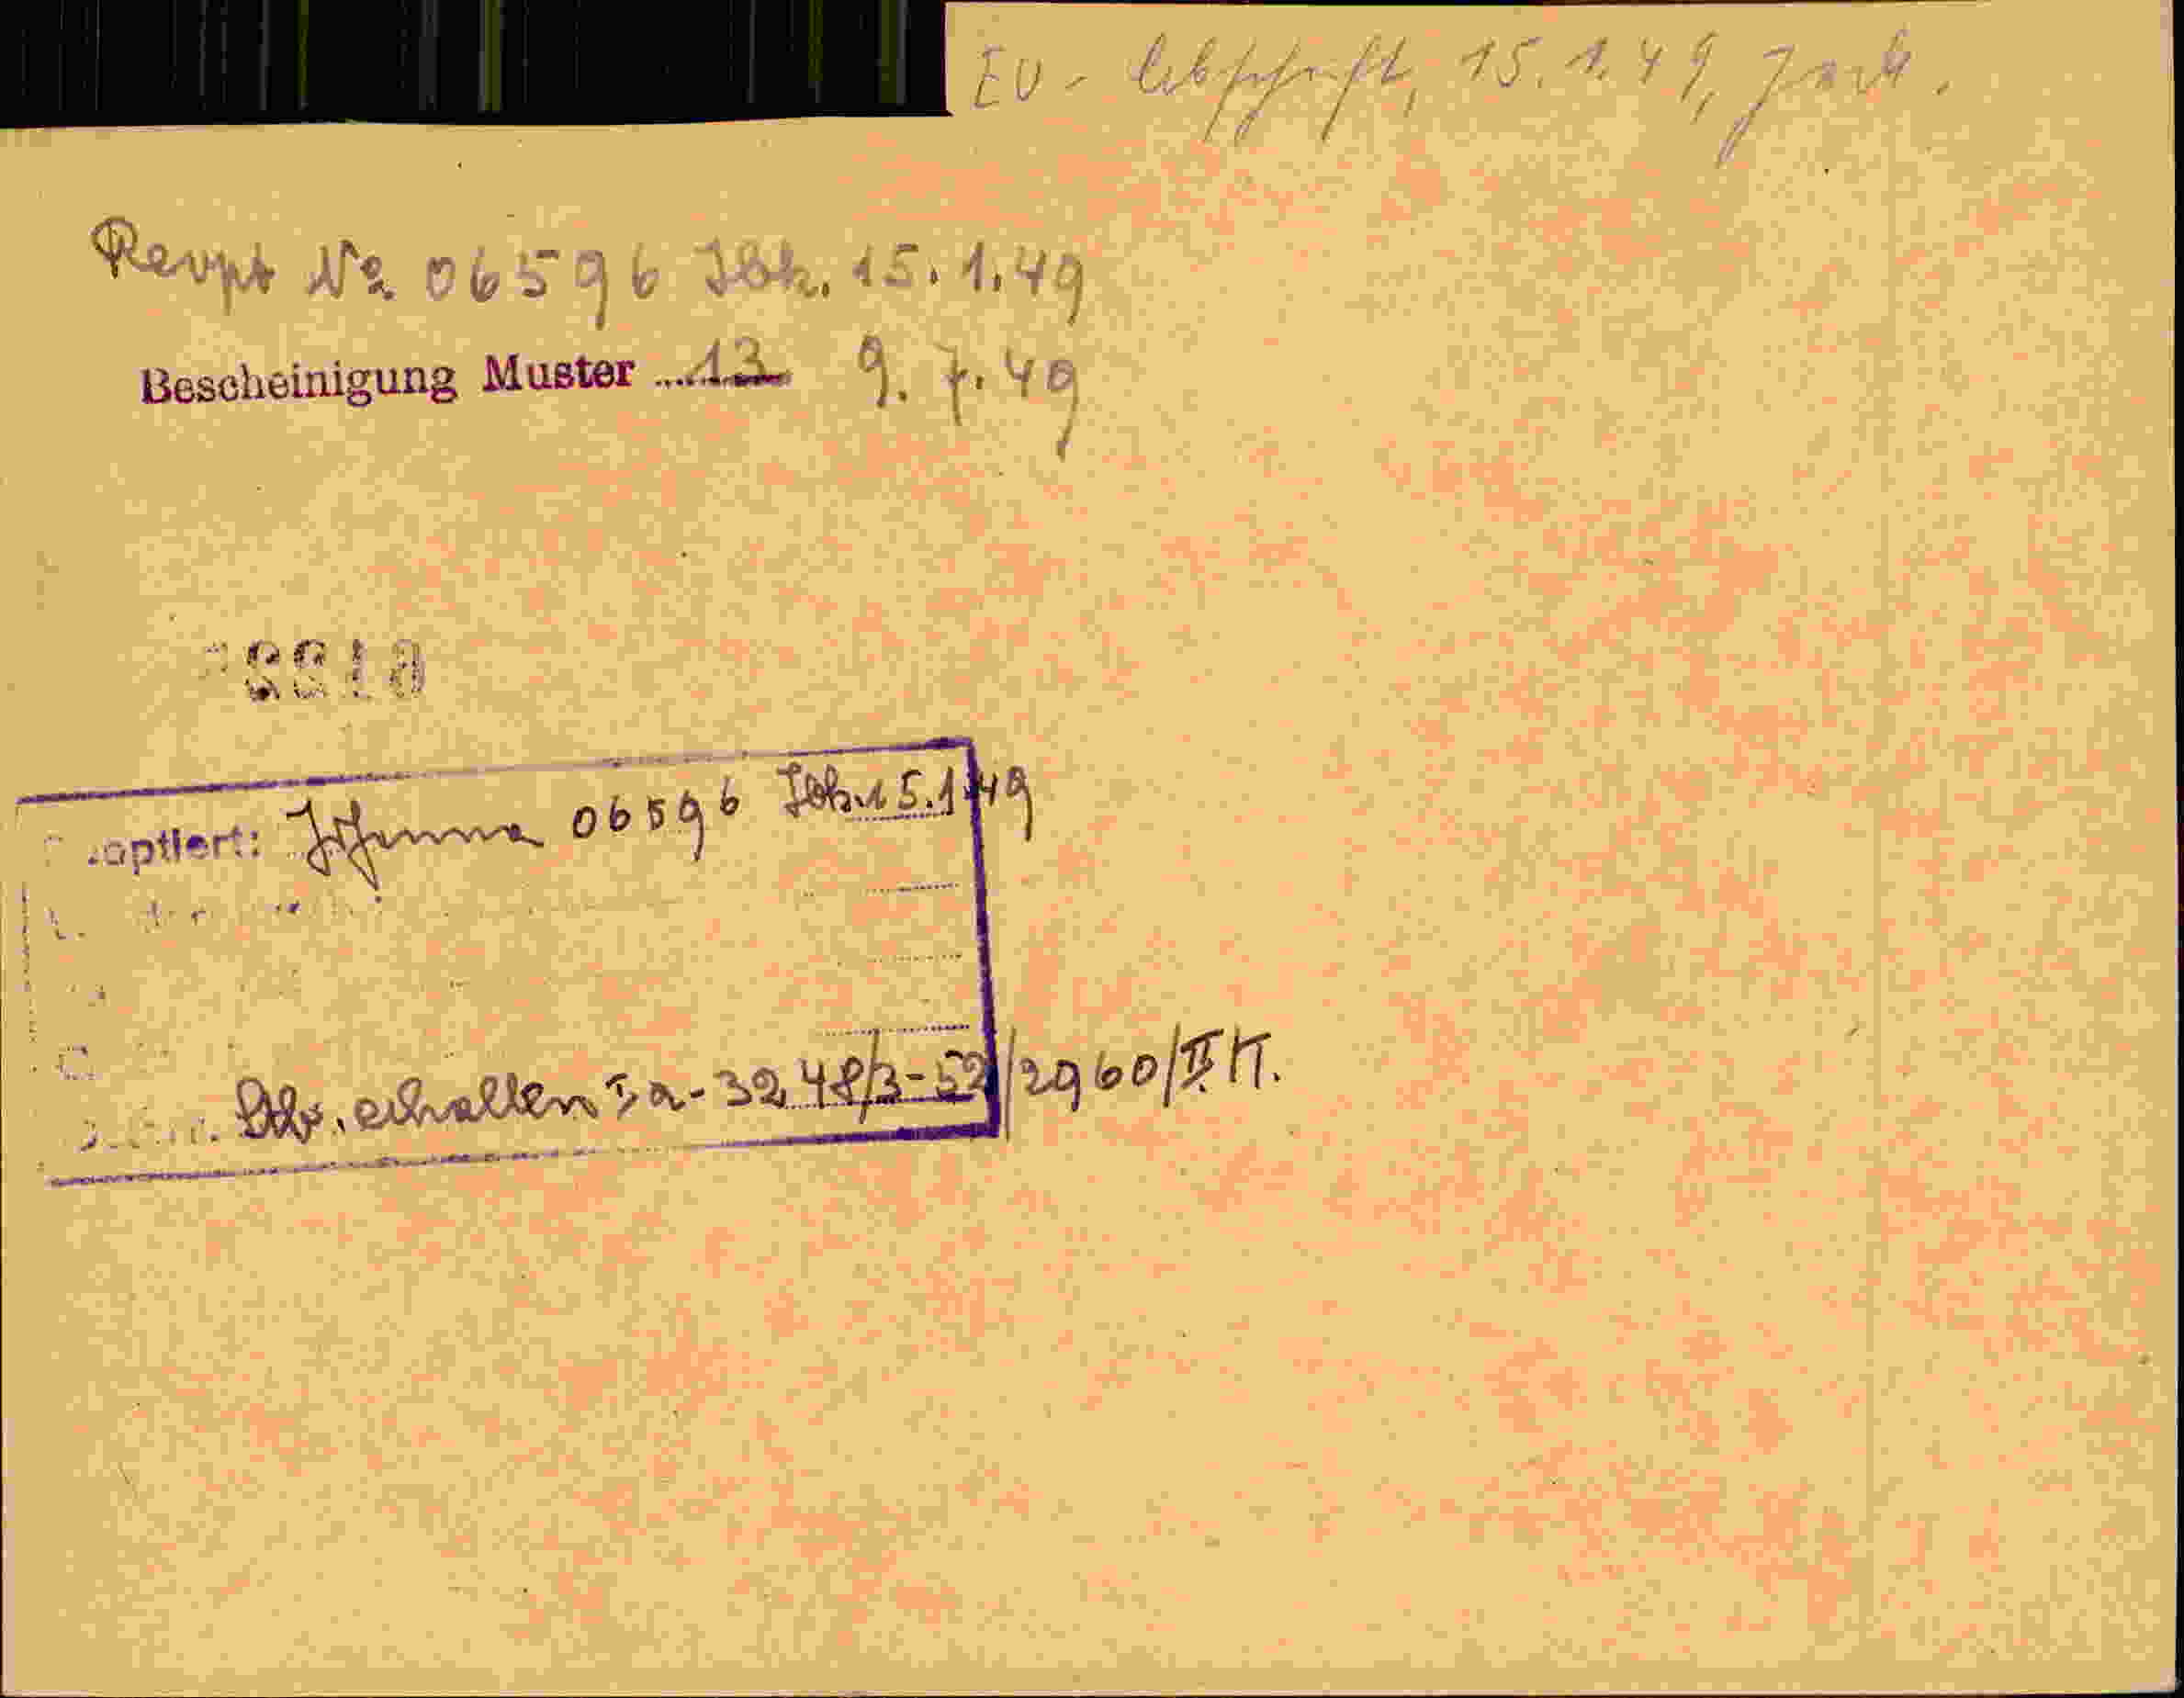 EV - Abschrift, 15.1.49,
Revpt No. 06596 Ibk. 15.1.49
Bescheinigung Muster 13 9.7.49
optiert: 06596 Ibk. 15.1.49
erhalten I a - 32.48/3-52/2960/II K.